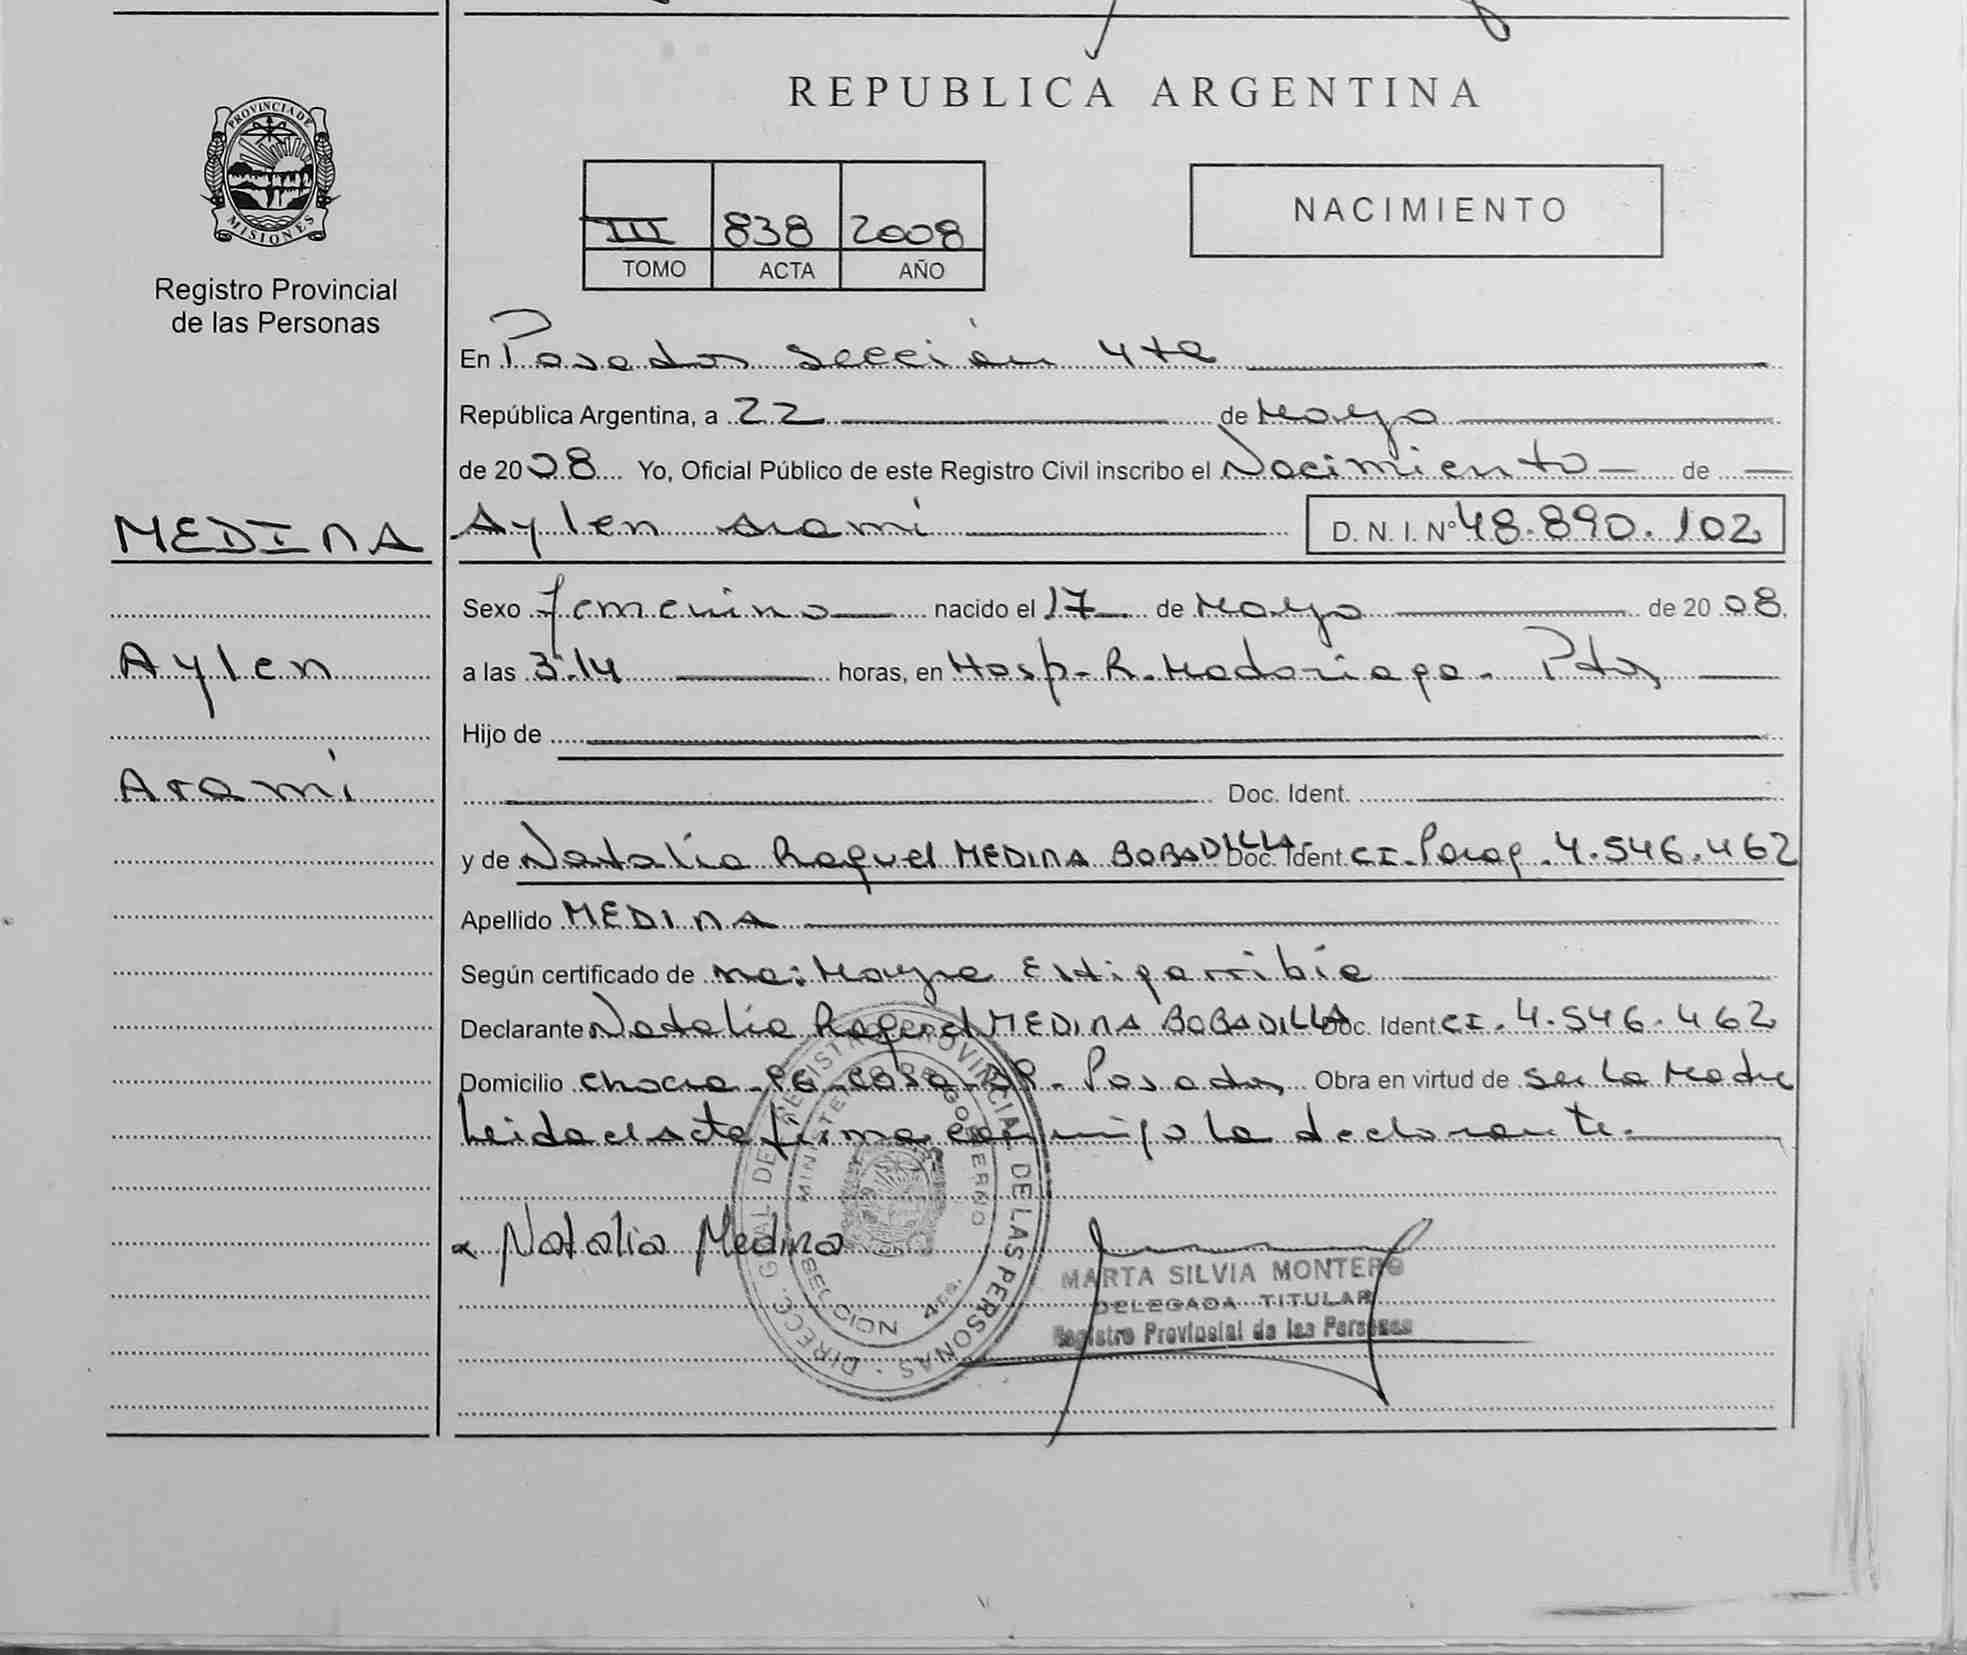 REPUBLICA ARGENTINA
PROVINCIA DE
MISIONES
Registro Provincial
de las Personas
III 838 2008
TOMO ACTA AÑO
NACIMIENTO
En Posadas sección 4ta
República Argentina, a 22 de Mayo
de 2008 Yo, Oficial Público de este Registro Civil inscribo el Nacimiento de
MEDINA
Aylen Arami D. N. I. Nº 48.890.102
Sexo femenino nacido el 17 de Mayo de 2008
Aylen
a las 3:14 horas, en Hosp. R. Madariaga. Pdas
Hijo de
Arami
Doc. Ident.
y de Natalia Raquel MEDINA BOBADILLA Doc. Ident CI. Parag. 4.546.462
Apellido MEDINA
Según certificado de Mayra Estigarribia
Declarante Natalia Raquel MEDINA BOBADILLA Doc. Ident CI. 4.546.462
Domicilio chacra casa Posadas Obra en virtud de ser la Madre
Leida el acta firma conmigo la declarante.
Natalia Medina
DIRECC. GRAL DE REGISTRO PROVINCIAL DE LAS PERSONAS
MINISTERIO DE GOBIERNO
MARTA SILVIA MONTERO
DELEGADA TITULAR
Registro Provincial de las Personas